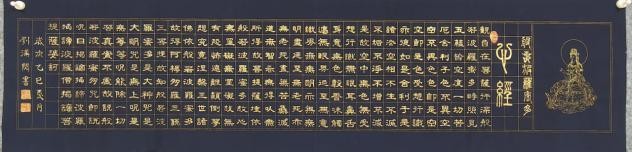 般若波羅蜜多
心經
觀自在菩薩行深般
若波羅蜜多時照見
五蘊皆空度一切苦
厄舍利子色不異空
空不異色色即是空
空即是色受想行識
亦復如是舍利子是
諸法空相不生不滅
不垢不淨不增不減
是故空中無色無受
想行識無眼耳鼻舌
身意無色聲香味觸
法無眼界乃至無意
識界無無明亦無無
明盡乃至無老死亦
無老死盡無苦集滅
道無智亦無得以無
所得故菩提薩埵依
般若波羅蜜多故心
無罣礙無罣礙故無
有恐怖遠離顛倒夢
想究竟涅槃三世諸
佛依般若波羅蜜多
故得阿耨多羅三藐
三菩提故知般若波
羅蜜多是大神咒是
大明咒是無上咒是
無等等咒能除一切
苦真實不虛故說般
若波羅蜜多咒即說
咒曰揭諦揭諦波羅
揭諦波羅僧揭諦菩
提薩婆訶
歲次乙巳夏月